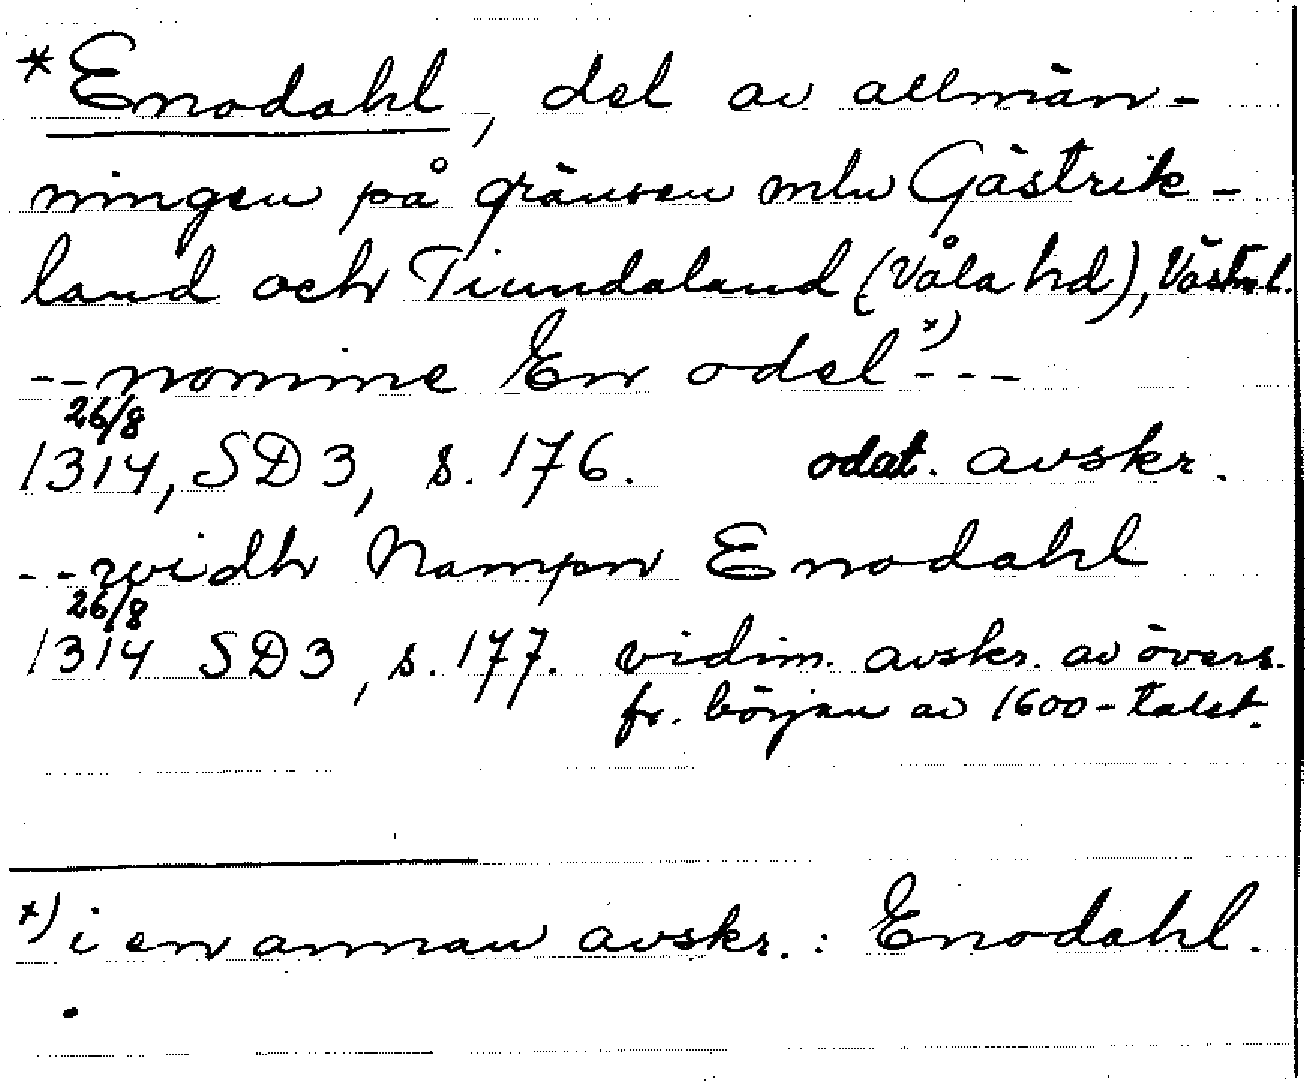 *Enodahl, del av allmän-
ningen på gränsen mln Gästrik-
land och Tiundaland (Våla hd), Västml.
--nomine En odel x) ---
26/8
1314, SD 3, s. 176. odat. avskr.
--widh Nampn Enodahl
26/8
1314 SD 3, s. 177. vidim. avskr. av övers.
fr. början av 1600-talet.
x) i en annan avskr.: Enodahl.